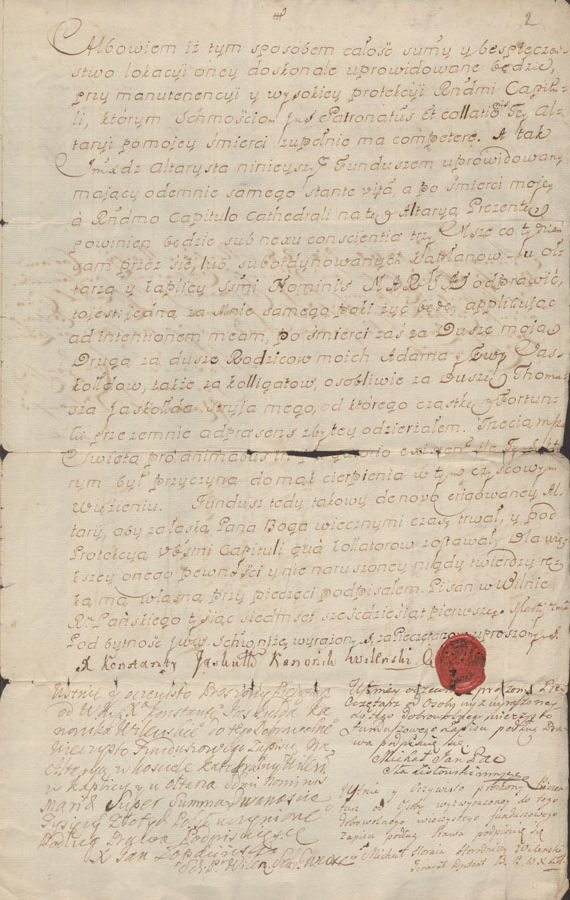 2
Albowiem iż tym sposobem całość sumy y bespieczeń-
stwo lokacyi oney doskonale uprowidowane będzie,
przy manutenencyi y wysokiey protekcyi Rndmi Capitu-
li, którym Ichmościom Jus Patronatus et collationis Tey Al-
taryi po mojey śmierci zupełnie ma competere. A tak
Imx dz Altarysta ninieysz Funduszem uprowidowany
mający odemnie samego stante vita, a po śmierci mojey
à Rndmo Capitulo Cathedrali na tę Altaryą Prezentę
powinien będzie sub nexu conscientiæ trzy Msze co ty dzień
sam przez się, lub subordynowanych Kapłanow u oł-
tarzą y kaplicy Ssmi Nominis MARIÆ odprawić,
to jest jedną za mnie samego poki żyć będę, applikując
ad intentionem meam, po śmierci zaś za Duszę moją
Drugą za dusze Rodzicow moich Adama y Ewy Jas-
kołdow, także za kolligatow, osobliwie za Duszę Thoma-
sza Jaskołda stryja mego, od którego cząstkę Fortun-
ki przezemnie ad præsens zbytey odzierżałem. Trzecią
Swięta pro animabus in
rym był przyczyną do mąk cierpienia w tym czyscowym
Więzieniu. Fundusz tedy takowy de novo erigowaney Al-
taryi, aby za łaską Pana Boga wiecznymi czasy trwał, y pod
Protekcyą Capituli quà kollatorow zostawał, Dla wię-
kszey onego pewności y nie naruszoney nigdy twierdzy rę-
ką mą własną przy pieczęci podpisałem. Pisan w Wilnie
Rku Pańskiego tysiąc siedmset sześćdziesiąt pierwszego
Pod bytność Ichmściow wyrażon, zapieczętarzow uproszonych.
X Konstanty Jaskułd Kanonik Wileński
Ustnie y oczewisto Proszony Pieczętarz
od W Jmci Xa Konstantego Jaskułda Ka-
nonika Wileńskiego do tego Dobrowolnego
Wieczysto Funduszowego Zapisu na
Altaryą w kosciele Katedralnym Wilen.
w kaplicy y u Ołtarza Ssmi Nominis
Mariæ Super Summam
Tysięcy Złotych Polsk uczynione
Podług Prawa Podpisuięsię
X Jan
Ustnie y oczewisto proszony Pie-
czętarz od Osoby wyż wyrażoney
do tego dobrowolnego wieczysto
funduszowego zapisu podług Pra-
wa podpisuię się
Michał Jan Pac
Ustnie y Oczywisto proszony Pieczę-
tarz od Osoby wyżwyrażoney do tego
dobrowolnego wieczystego funduszowego
zapisu podług Prawa podpisuię się
Michał Horain Horodniczy Wileński